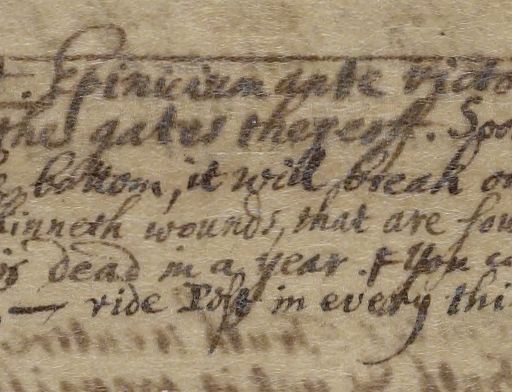 . Epinicium ante victo
the gates thereoff. Spo
bottom, it will break or
skinneth wounds, that are fou
is dead in a year. & you ca
— ride Post in every thi